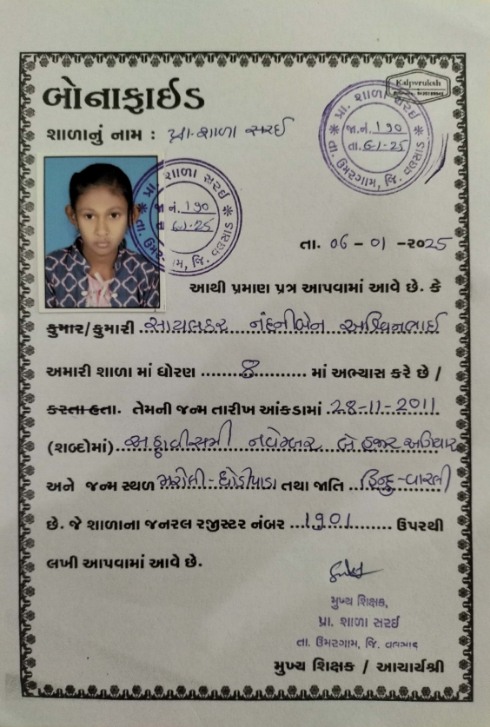 Kalpvruksh
બોનાફાઈડ
શાળાનું નામ : પ્રા. શાળા સરઈ
પ્રા. શાળા સરઈ
જા.નં. 190
તા. 6-1-25
તા. ઉમરગામ, જિ. વલસાડ
પ્રા. શાળા સરઈ
જા.નં. 190
તા 6-1-25
તા. ઉમરગામ, જિ. વલસાડ
તા. 06 - 01 - ૨૦25
આથી પ્રમાણ પત્ર આપવામાં આવે છે. કે
કુમાર/કુમારી નંદનીબેન અશ્વિનભાઈ
અમારી શાળા માં ધોરણ 8 માં અભ્યાસ કરે છે /
કરતા હતા. તેમની જન્મ તારીખ આંકડામાં 28-11-2011
(શબ્દોમાં) અઠ્ઠાવીસમી નવેમ્બર બે હજાર અગિયાર
અને જન્મ સ્થળ મરોલી-ધોડીપાડા તથા જાતિ હિન્દુ-વારલી
છે. જે શાળાના જનરલ રજીસ્ટર નંબર 1901 ઉપરથી
લખી આપવામાં આવે છે.
મુખ્ય શિક્ષક,
પ્રા. શાળા સરઈ
તા. ઉમરગામ, જિ. વલસાડ
મુખ્ય શિક્ષક / આચાર્યશ્રી